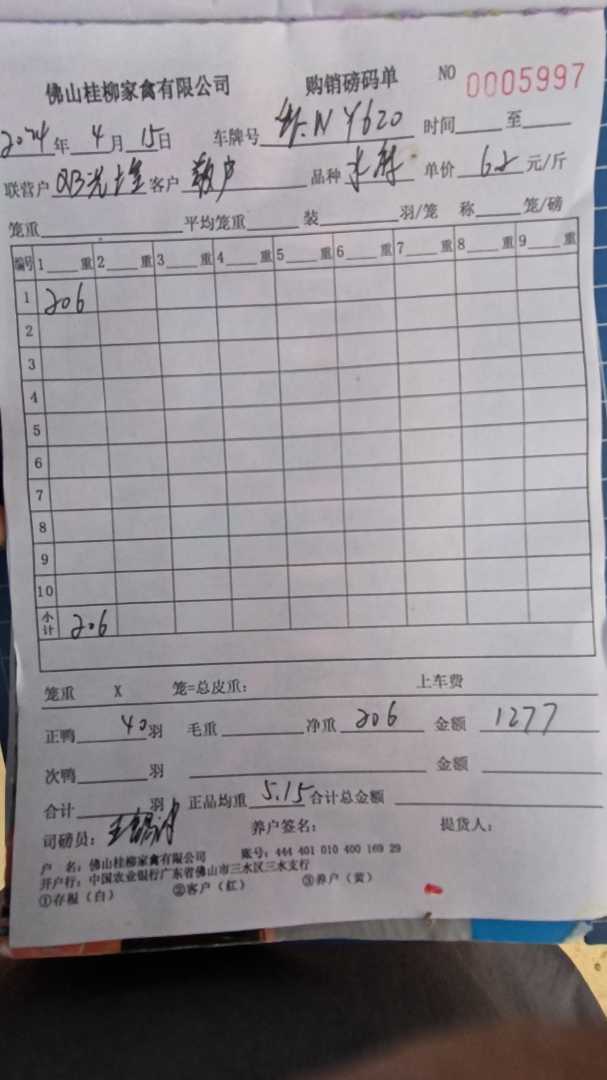 佛山桂柳家禽有限公司 购销磅码单 NO 0005997
2024年 4月 15日 车牌号 N Y620 时间 至
联营户 客户 散户 品种 单价 6.2 元/斤
笼重 平均笼重 装 羽/笼 称 笼/磅
编号 1 重 2 重 3 重 4 重 5 重 6 重 7 重 8 重 9 重
1 206
2
3
4
5
6
7
8
9
10
小计 206
笼重 X 笼=总皮重: 上车费
正鸭 40 羽 毛重 净重 206 金额 1277
次鸭 羽 金额
合计 羽 正品均重 5.15 合计总金额
司磅员: 养户签名: 提货人:
户 名: 佛山桂柳家禽有限公司 账号: 444 401 010 400 169 29
开户行: 中国农业银行广东省佛山市三水区三水支行
①存根(白) ②客户(红) ③养户(黄)